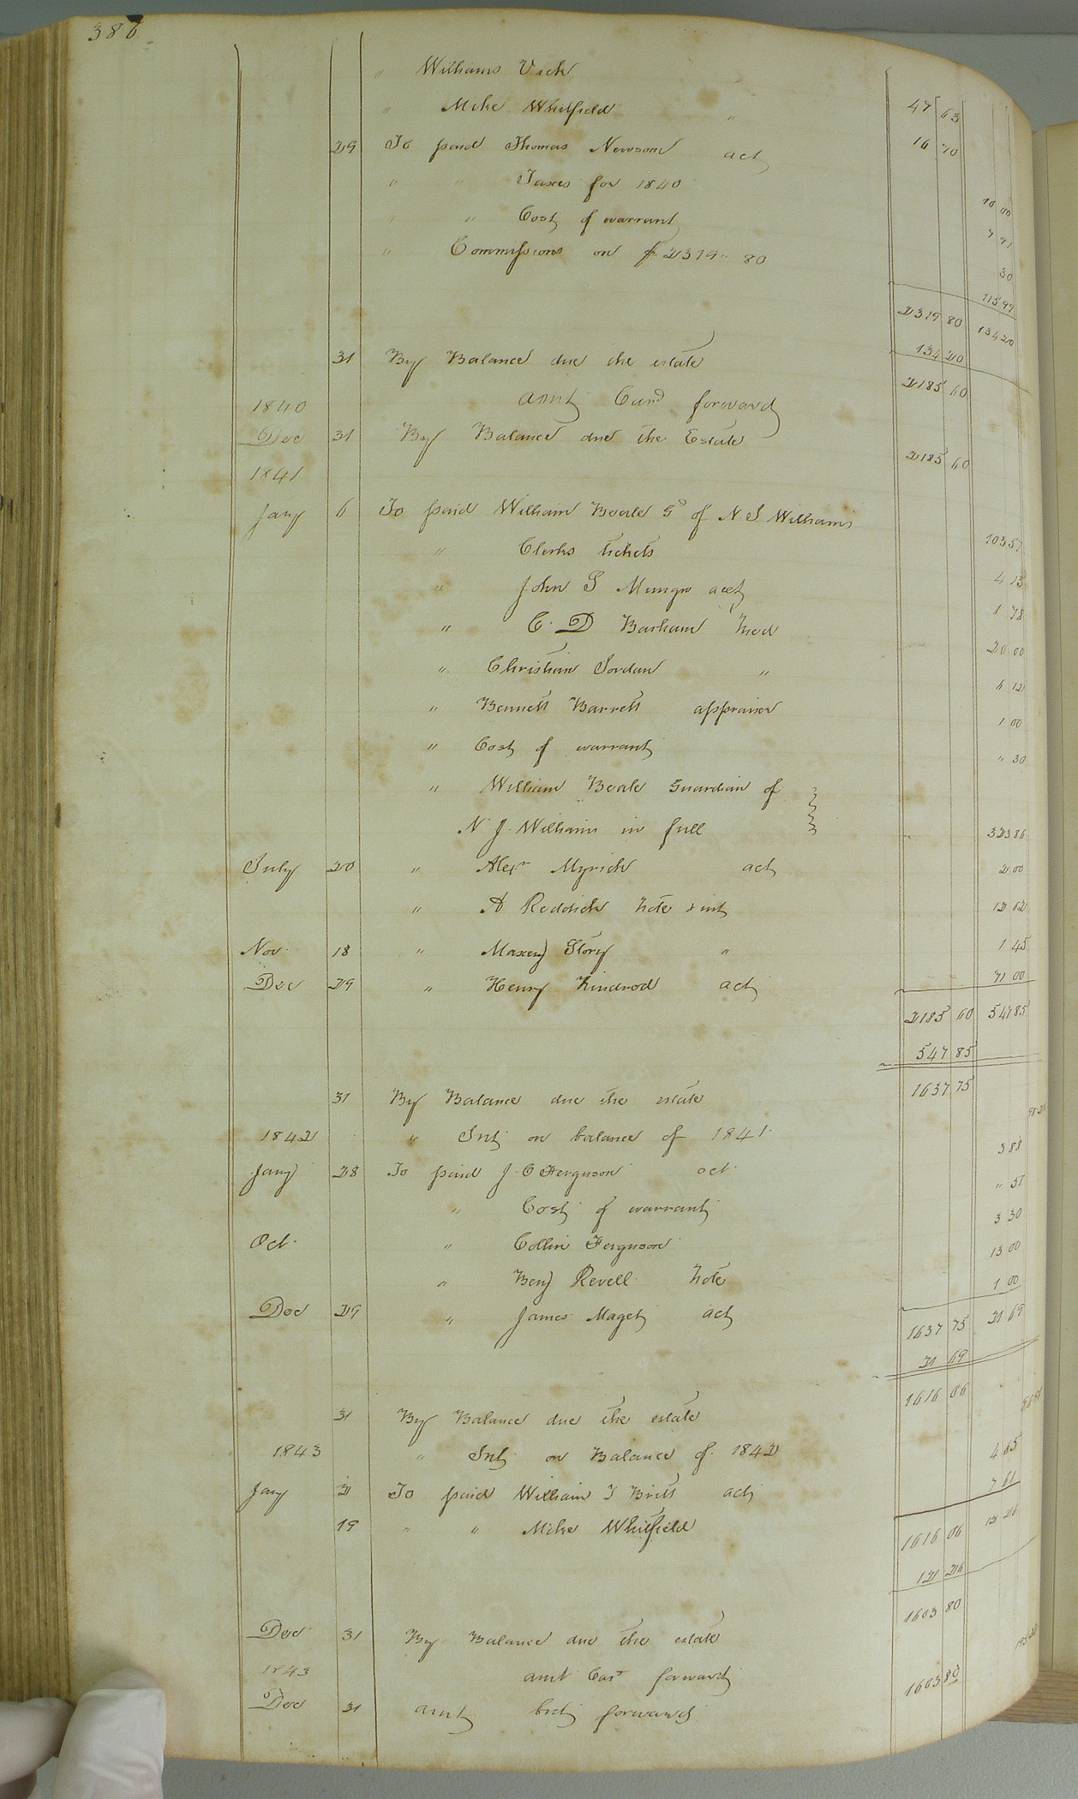 386
" Williams Vick 47 63
" Mike Whitfield " 16 70
29 To paid Thomas Newsom act 10 00
" " Taxes for 1840 7 91
" " Cost of warrant 30
" Commissions on $2319 " 80 115 99
2319 80 134 20
134 20
31 By Balance due the estate 2185 60
amt Card forward
1840
Dec 31 By Balance due the Estate 2185 60
1841
Jany 6 To paid William Beale Gd of N J Williams 103 57
" Clerks tickets 4 15
" John S Mungo act 1 78
" C. D Barham 20 00
" Christian Jordan " 6 12
" Bennett Barrett appraiser 1 00
" Cost of warrant " 30
" William Beale Guardian of
N J. Williams in full 323 86
July 20 " Alexr Myrick act 2 00
" A Reddick note & int 12 12
Nov. 18 " Maxey Story " 1 45
Dec 29 " Henry Kindrod act 71 00
2185 60 547 85
547 85
31 By Balance due the estate 1637 75
1842 " Int on balance of 1841.
Jany 28 To paid J. C Ferguson act 3 88
" Cost of warrant
Oct. " Collin Ferguson 3 30
" Benj Revell note 13 00
Dec 29 " James Maget act 1 00
1637 75 21 69
21 69
31 By Balance due the estate 1616 06
1843 " Int on Balance of 1842
Jany 2 To paid William J Britt act 4 65
19 " " Mike Whitfield 7 61
1616 06 12 26
12 26
Dec 31 By Balance due the estate 1603 80
1843 amt Card forward
Dec 31 amt brt forward 1603 80